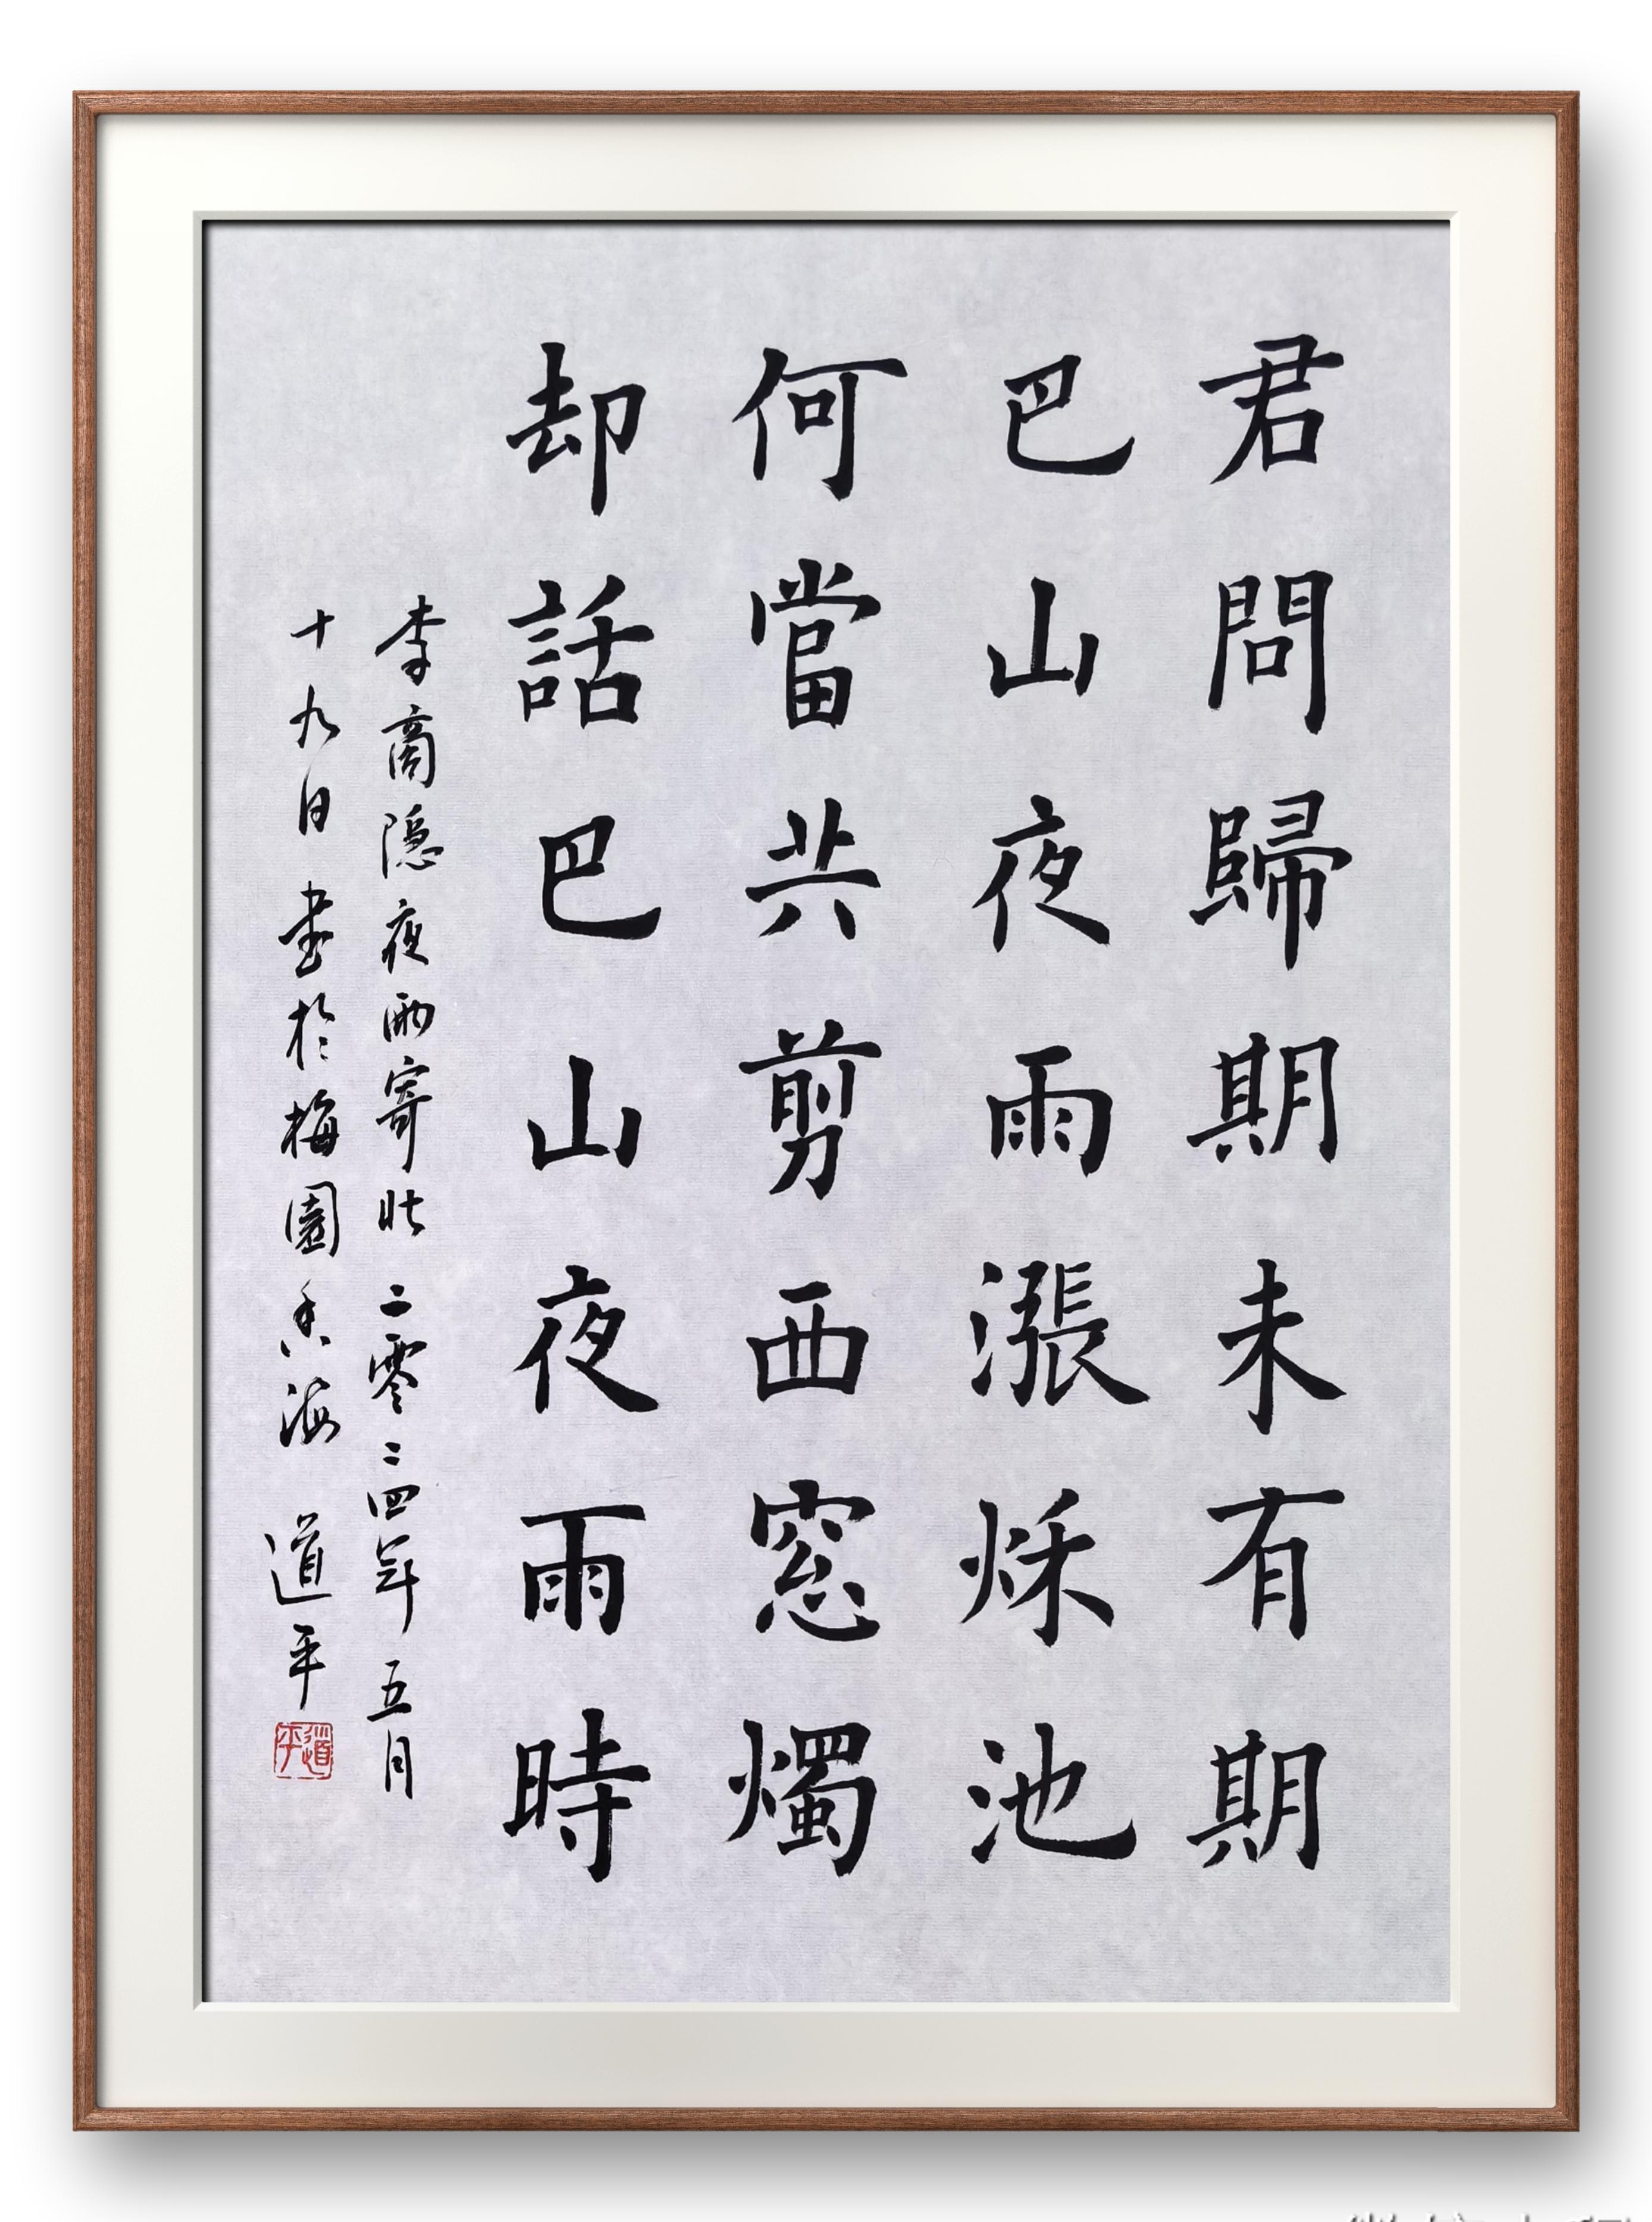 君問歸期未有期
巴山夜雨漲秌池
何當共剪西窓燭
却話巴山夜雨時
李商隠夜雨寄北 二零二四年五月
十九日书於梅園香海 道平
道平